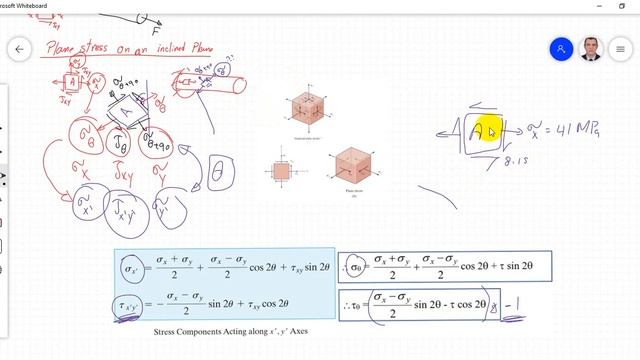 rosoft Whiteboard
F
Plane stress on an inclined Plane
σx
A
σx
τxy
σθ+90
A
σθ
σθ+90
σθ
??
σθ
τθ
σθ+90
θ
σx
τxy
σy
σx'
τx'y'
σy'
Plane stress
(b)
A
σx = 41 MPa
8.15
σx' = (σx + σy)/2 + (σx − σy)/2 cos 2θ + τxy sin 2θ
τx'y' = −(σx − σy)/2 sin 2θ + τxy cos 2θ
Stress Components Acting along x', y' Axes
∴σθ = (σx+σy)/2 + (σx−σy)/2 cos 2θ + τ sin 2θ
∴τθ = (σx−σy)/2 sin 2θ - τ cos 2θ × -1